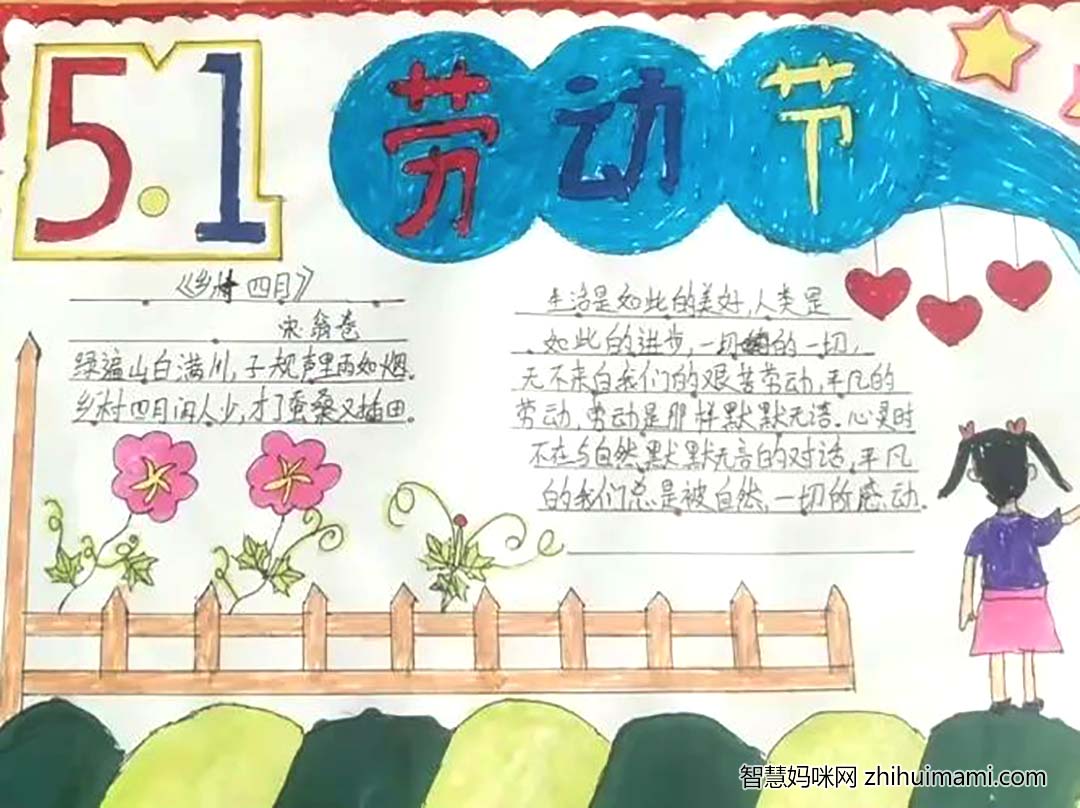 5.1
劳动节
《乡村四月》
宋.翁卷
绿遍山白满川,子规声里雨如烟。
乡村四月闲人少,才了蚕桑又插田。
生活是如此的美好,人类是
如此的进步,一切的一切,
无不来自我们的艰苦劳动,平凡的
劳动,劳动是那样默默无语。心灵时
不在与自然默默无言的对话,平凡
的我们总是被自然,一切所感动。
智慧妈咪网 zhihuimami.com